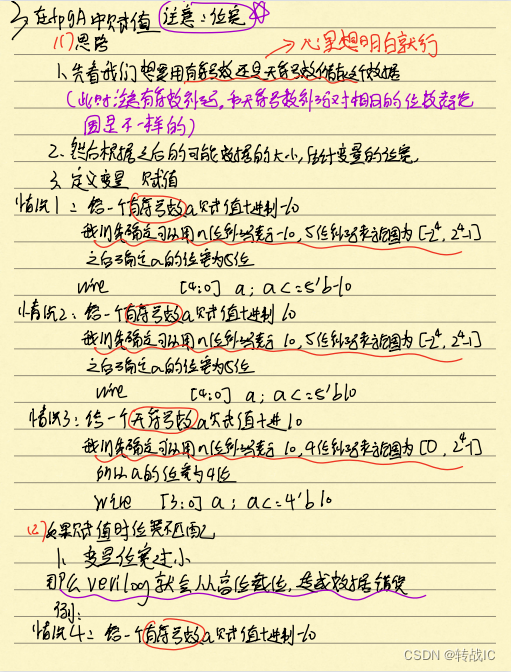 3、在fpgA中赋值 注意:位宽
(1)思路 → 心里想明白就行
1、先看我们想要用有符号数还是无符号数储存这个数据
(此时注意有符号数补码,和无符号数补码对相同的位数表范
围是不一样的)
2、然后根据之后的可能数据的大小,估计变量的位宽
3、定义变量 赋值
情况1:给一个有符号数a赋值十进制-10
我们先确定可以用n位补码表示-10,5位补码表示范围为[-2^4, 2^4-1]
之后确定a的位宽为5位
wire [4:0] a; a<=5'b-10
情况2:给一个有符号数a赋值十进制10
我们先确定可以用n位补码表示10,5位补码表示范围为[-2^4, 2^4-1]
之后确定a的位宽为5位
wire [4:0] a; a<=5'b10
情况3:给一个无符号数a赋值十进10
我们先确定可以用n位补码表示10,4位补码表示范围为[0, 2^4-1]
所以a的位宽为4位
wire [3:0] a; a<=4'b10
(2)如果赋值时位宽不匹配
1、变量位宽过小
那么verilog就会从高位截位,造成数据错误
例:
情况4:给一个有符号数a赋值十进制-10
CSDN @转战IC